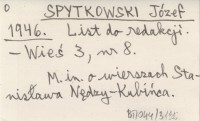 O
SPYTKOWSKI Józef
1946. List do redakcji.
– Wieś 3, nr 8.
M.in. o wierszach Sta-
nisława Nędzy-Kubińca.